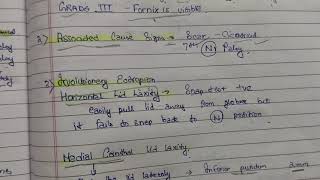 GRADE III - Fornix is visible
2) Associated Cause Signs → Scar - Cicatricial
7th (N) Palsy
3) Involutionary Ectropion
Horizontal Lid Laxity → Snapback test +ve
easily pull lid away from globe but
it fails to snap back to (N) position
Medial Canthal lid laxity
the lid laterally → Inferior punctum 2mm